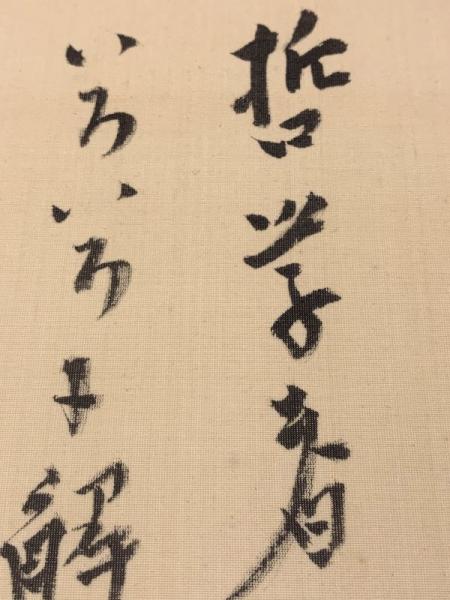 哲学者
いろいろ解